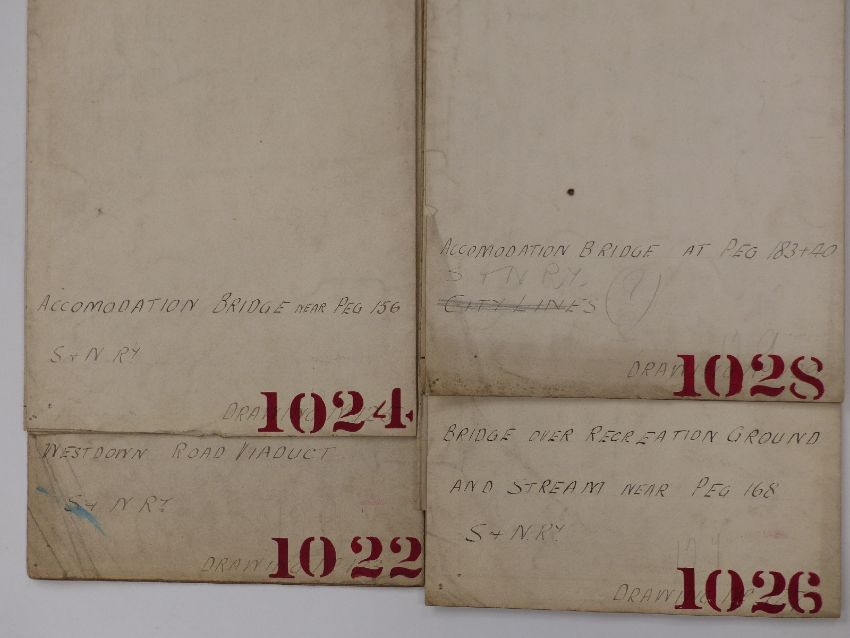 ACCOMODATION BRIDGE NEAR PEG 156
S + N RY
DRAWING
1024
WESTDOWN ROAD VIADUCT
S + N RY
DRAWING
1022
ACCOMODATION BRIDGE AT PEG 183+40
S + N RY.
CITY LINES (?)
DRAWING
1028
BRIDGE OVER RECREATION GROUND
AND STREAM NEAR PEG 168
S + N. RY.
DRAWING
1026